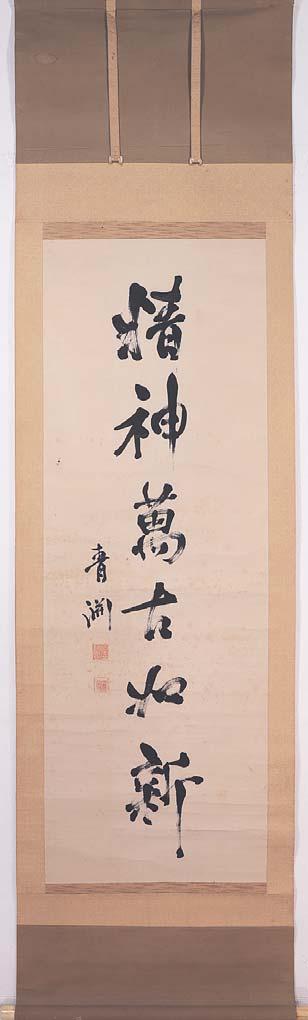 精神萬古如新
青淵